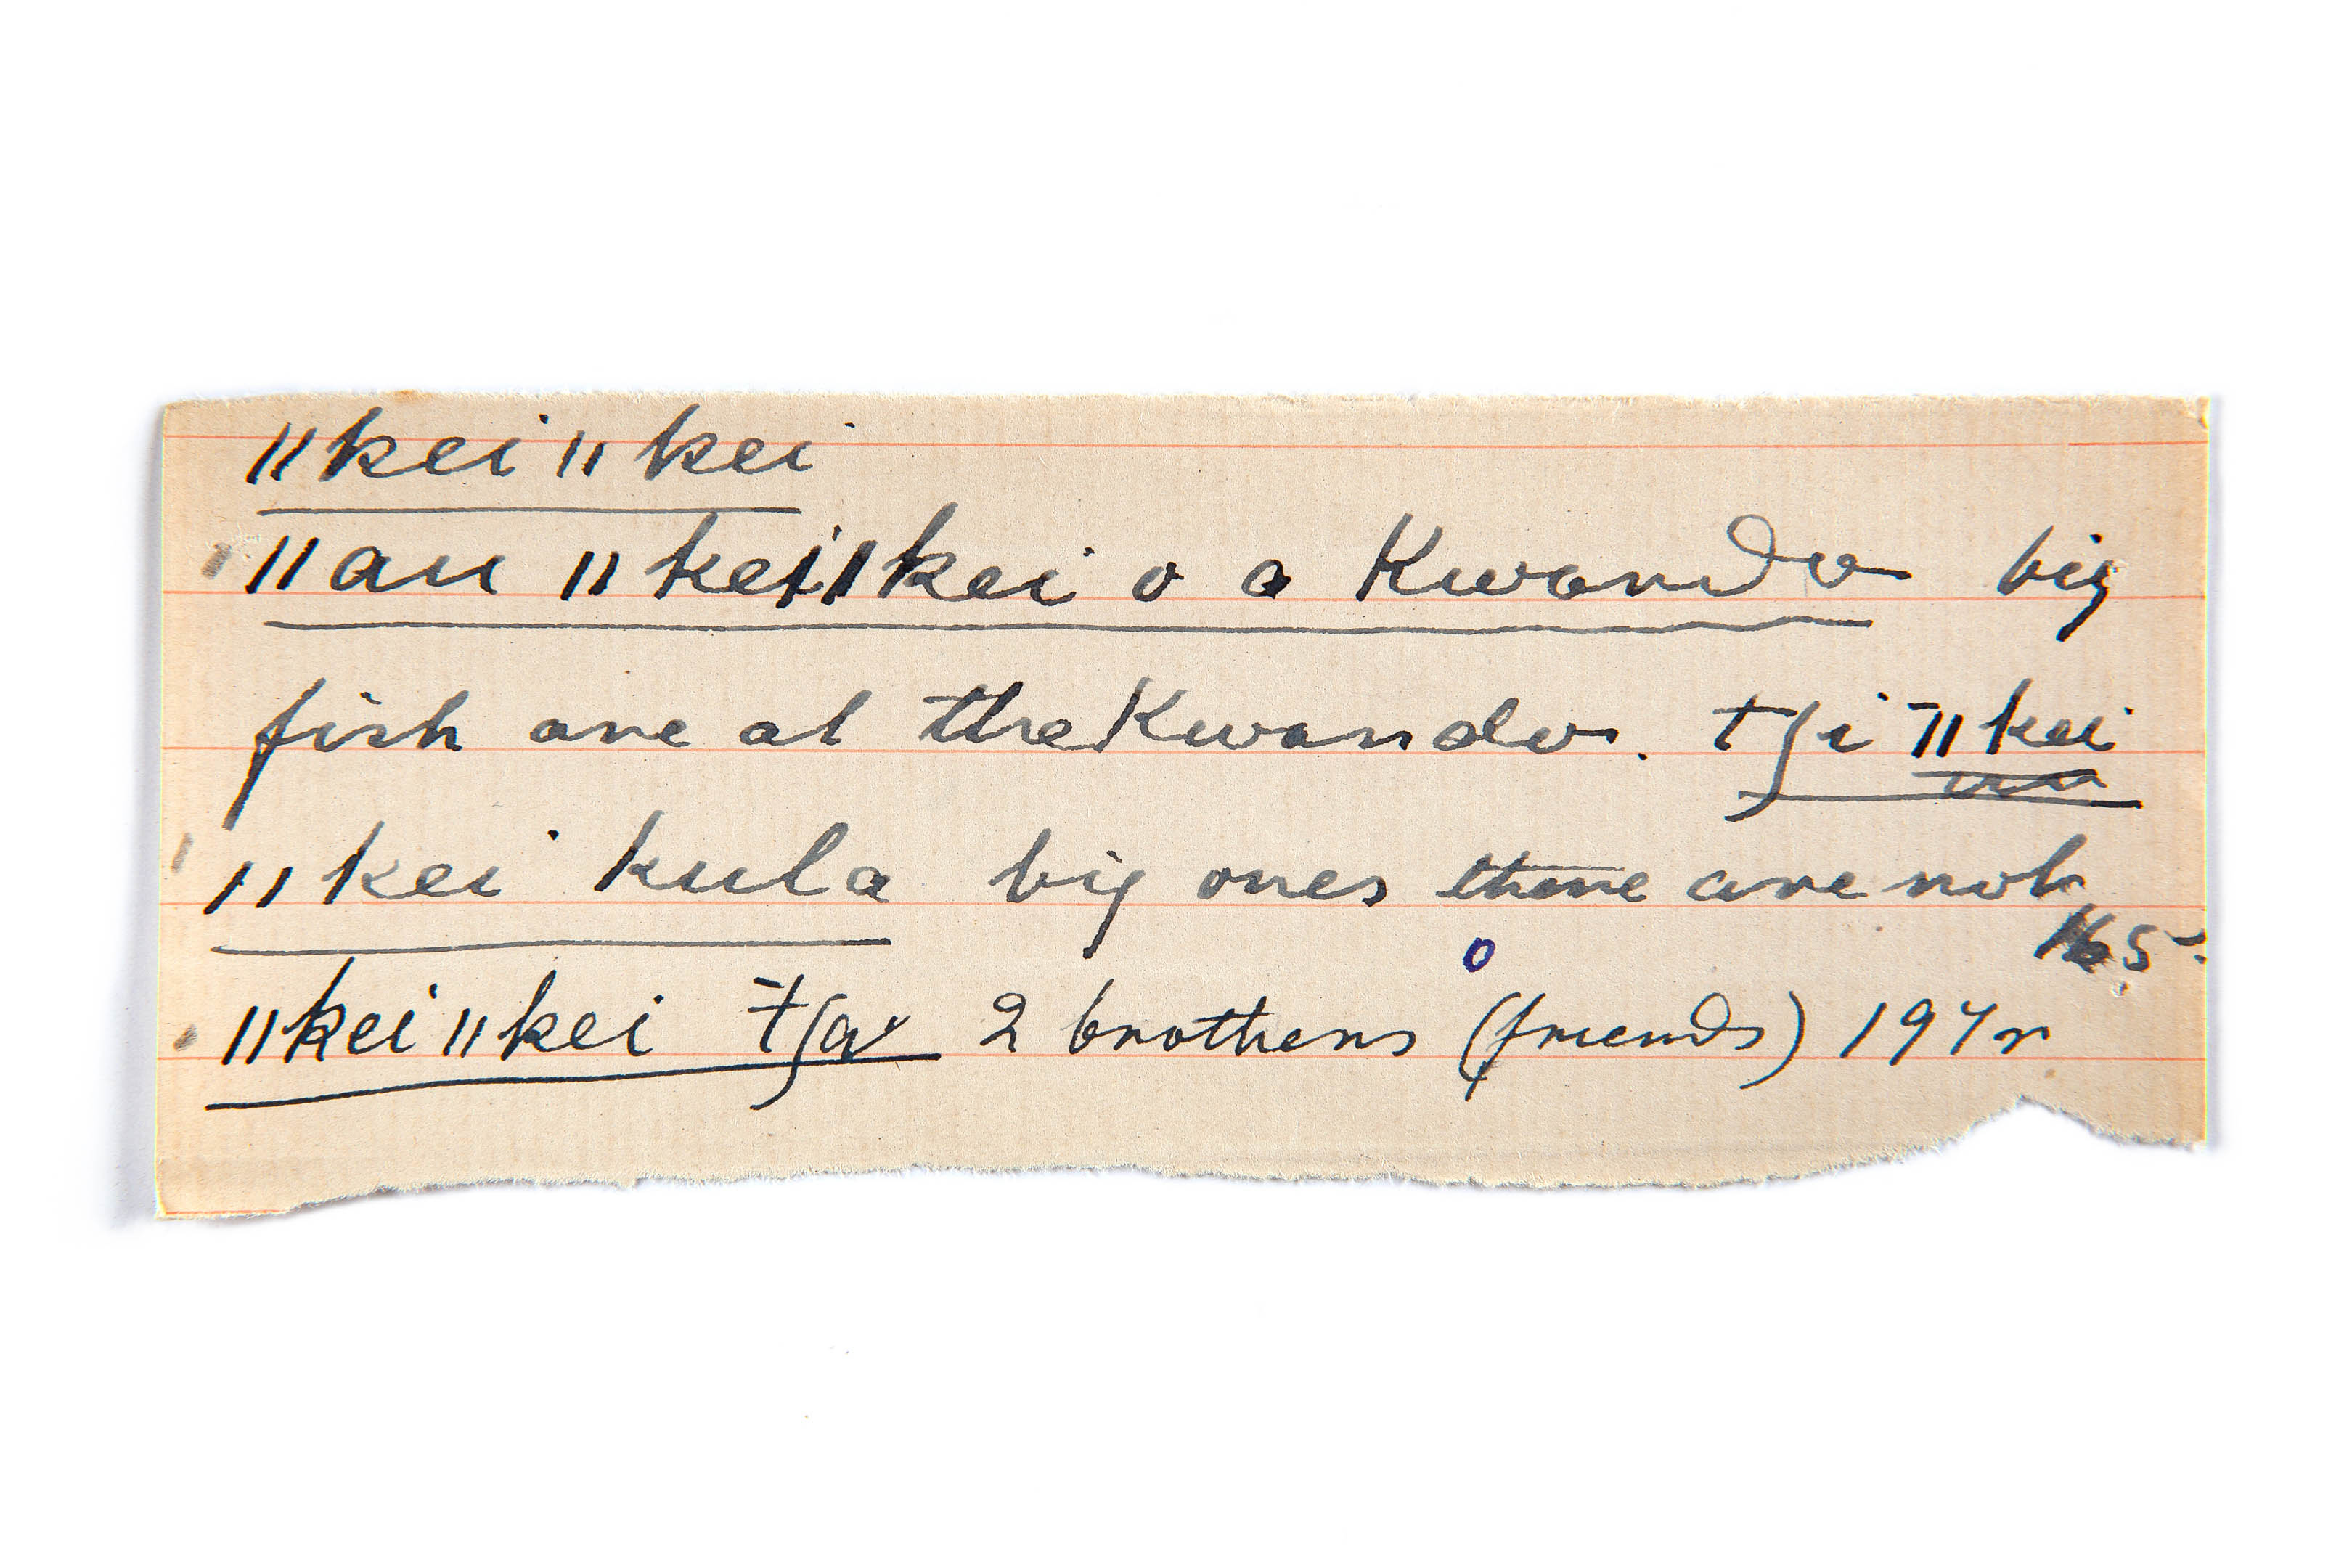 ǁkeiǁkei
ǁau ǁkeiǁkei o a Kwando big
fish are at the Kwando. tʃi ǁkei
ǁkei kula big ones there are not
165.
ǁkeiǁkei tʃa 2 brothers (friends) 197r